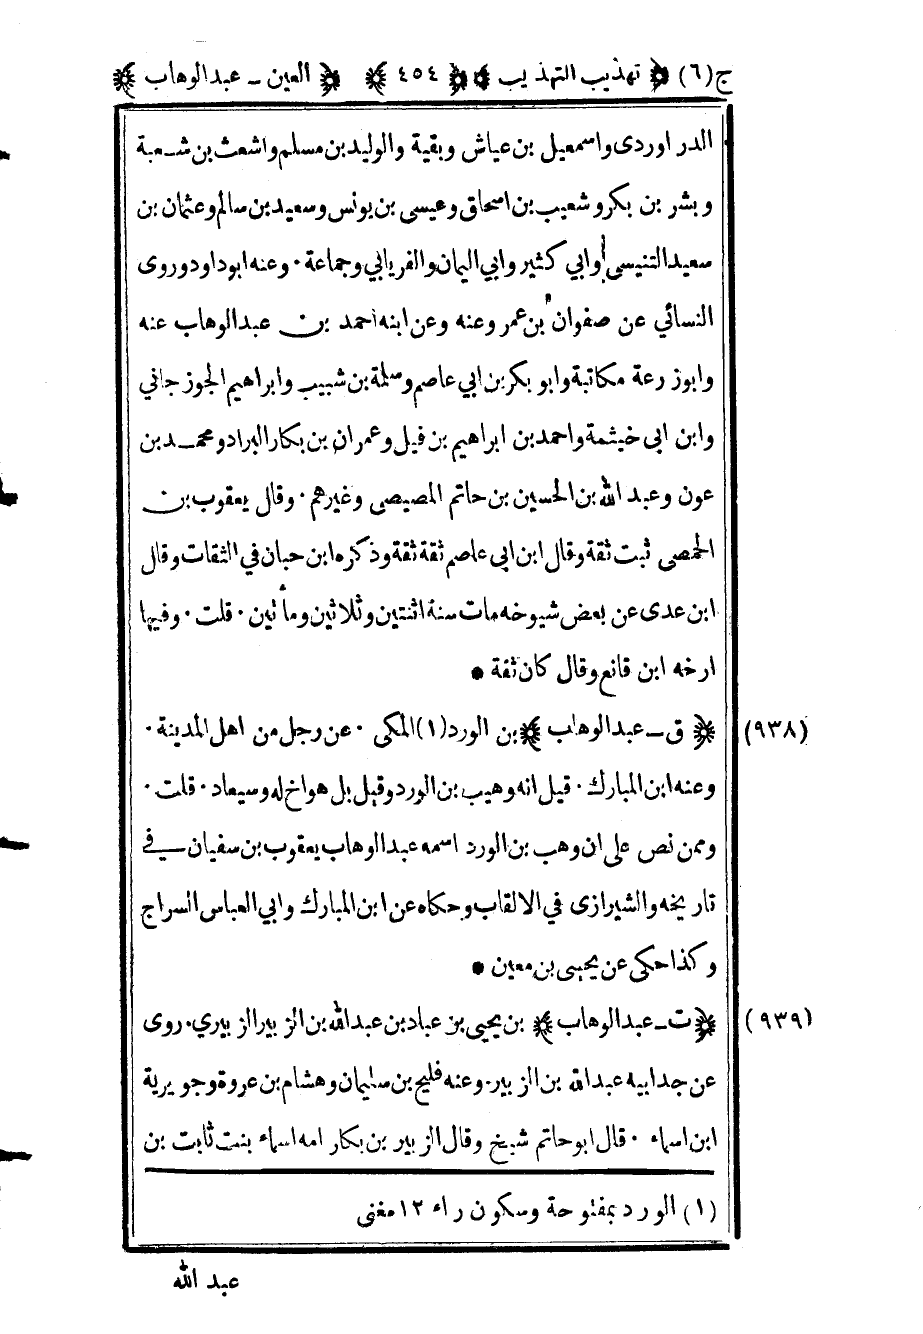 ج(٦) ﴿ تهذيب التهذيب ﴾ ﴿ ٤٥٤ ﴾ ﴿ العين - عبدالوهاب ﴾
الدراوردى واسمعيل بن عياش وبقية والوليد بن مسلم واشعث بن شعبة
وبشر بن بكر وشعيب بن اسحاق وعيسى بن يونس وسعيد بن سالم وعثمان بن
سعيد التنيسى وابي كثير وابي اليمان والفريابي وجماعة · وعنه ابوداود وروى
النسائي عن صفوان بن عمر وعنه وعن ابنه احمد بن عبدالوهاب عنه
وابوزرعة مكاتبة وابو بكر بن ابي عاصم وسلمة بن شبيب وابراهيم الجوزجاني
وابن ابى خيثمة واحمد بن ابراهيم بن فيل وعمران بن بكار البراد ومحمد بن
عون وعبد الله بن الحسين بن حاتم المصيصى وغيرهم · وقال يعقوب بن
الحمصى ثبت ثقة وقال ابن ابى عاصم ثقة ثقة وذكره ابن حبان في الثقات وقال
ابن عدى عن بعض شيوخه مات سنة اثنتين وثلاثين ومأتين · قلت · وفيها
ارخه ابن قانع وقال كان ثقة •
(٩٣٨) ﴿ ق - عبدالوهاب ﴾ بن الورد (١) المكى · عن رجل من اهل المدينة ·
وعنه ابن المبارك · قيل انه وهيب بن الورد وقيل بل هواخ له وسيعاد · قلت ·
وممن نص على ان وهب بن الورد اسمه عبدالوهاب يعقوب بن سفيان في
تاريخه والشيرازى في الالقاب وحكاه عن ابن المبارك وابي العباس السراج
وكذا حكى عن يحيى بن معين •
(٩٣٩) ﴿ ت - عبدالوهاب ﴾ بن يحيى بن عباد بن عبدالله بن الزبير الزبيري · روى
عن جد ابيه عبدالله بن الزبير · وعنه فليح بن سليمان وهشام بن عروة وجويرية
ابن اسماء · قال ابوحاتم شيخ وقال الزبير بن بكار امه اسماء بنت ثابت بن
(١) الورد بمفتوحة وسكون راء ١٢ مغنى
عبد الله